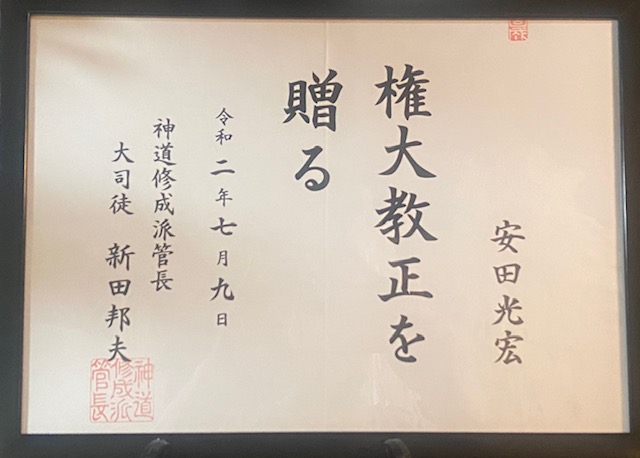 安田光宏
権大教正を
贈る
令和二年七月九日
神道修成派管長
大司徒 新田邦夫
神道
修成派
管長